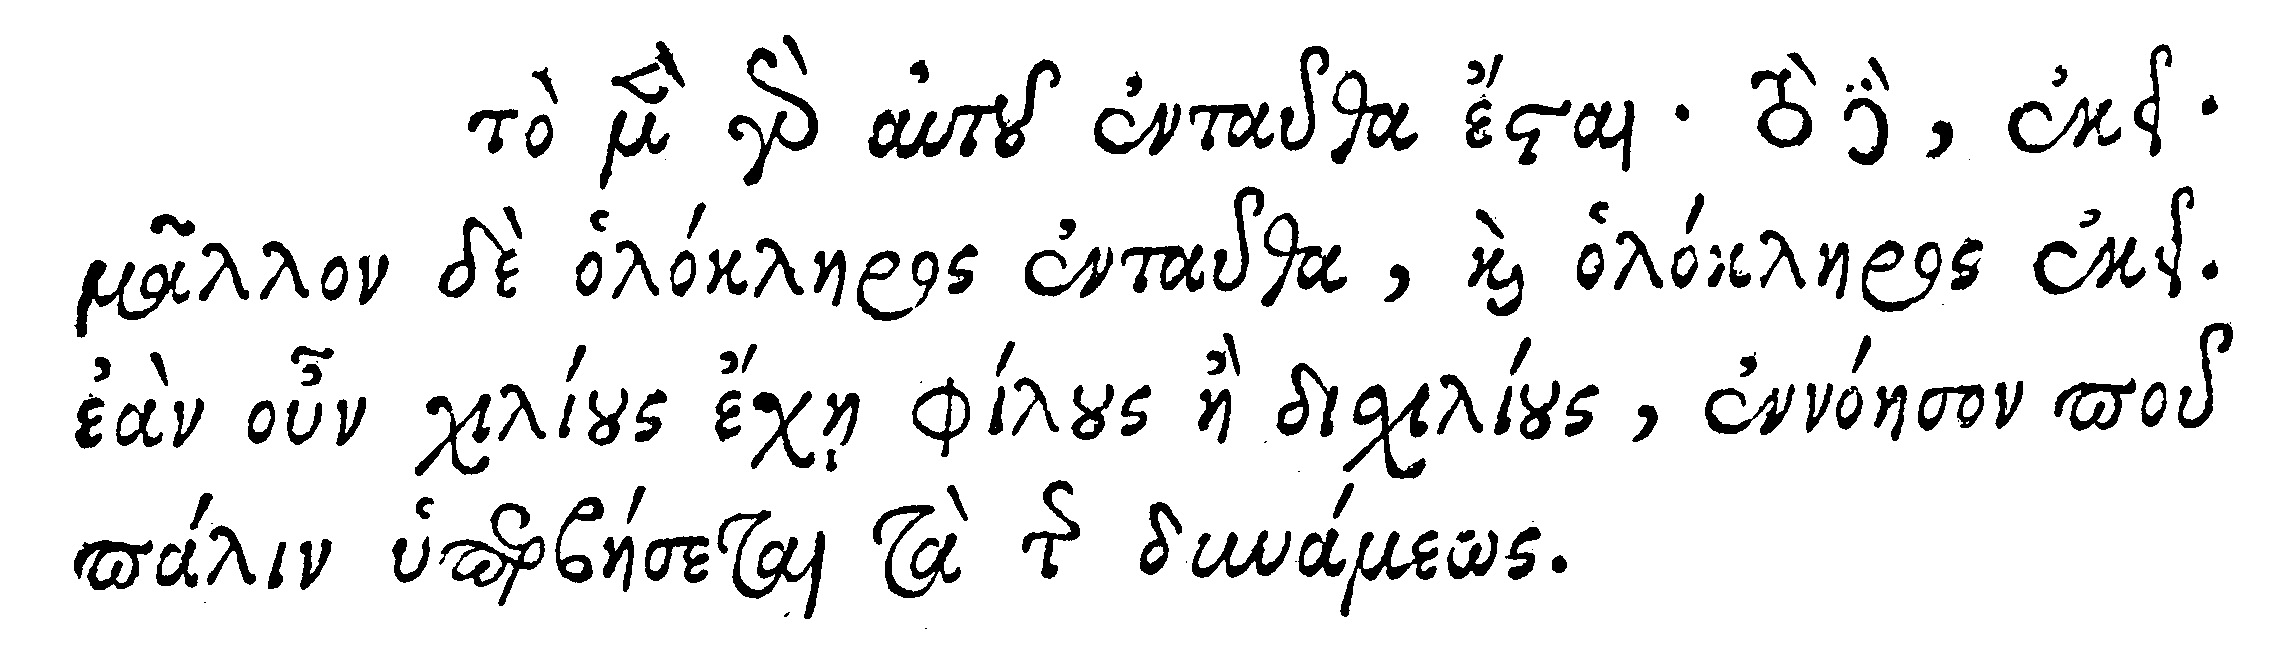 τὸ μὲν γὰρ αὐτοῦ ἐνταῦθα ἔσται· τὸ δὲ, ἐκεῖ·
μᾶλλον δὲ ὁλόκληρος ἐνταῦθα, καὶ ὁλόκληρος ἐκεῖ.
ἐὰν οὖν χιλίους ἔχῃ φίλους ἢ διχιλίους, ἐννόησον ποῦ
πάλιν ὑπερβήσεται τὰ τῆς δυνάμεως.